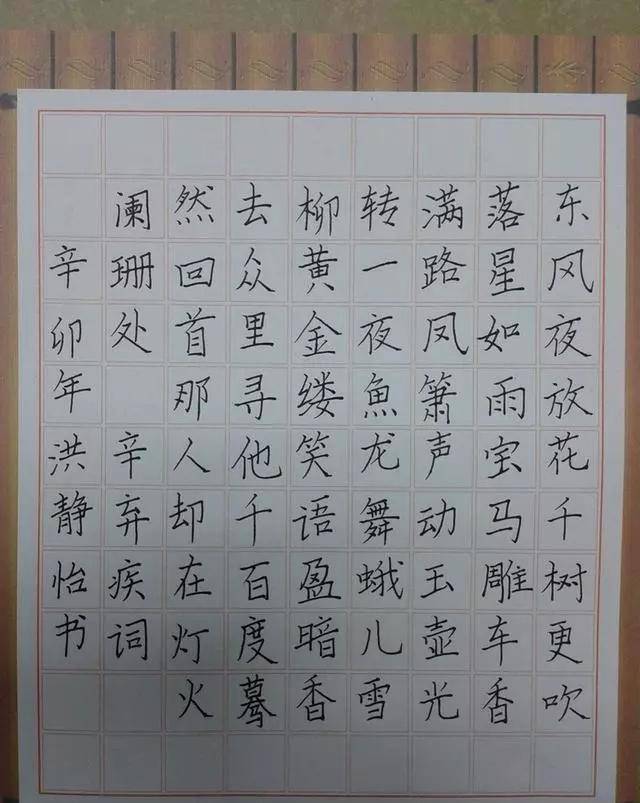 东风夜放花千树更吹
落星如雨宝马雕车香
满路凤箫声动玉壶光
转一夜魚龙舞蛾儿雪
柳黄金缕笑语盈暗香
去众里寻他千百度蓦
然回首那人却在灯火
阑珊处 辛弃疾词
辛卯年洪静怡书